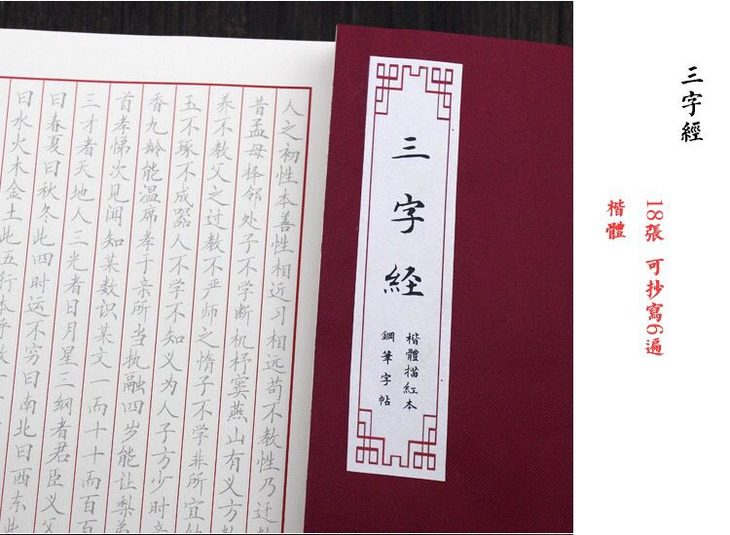 三字經
18張 可抄寫6遍
楷體
三字経
楷體描紅本
鋼筆字帖
人之初性本善性相近习相远苟不教性乃迁
昔孟母择邻处子不学断机杼窦燕山有义方
养不教父之过教不严师之惰子不学非所宜
玉不琢不成器人不学不知义为人子方少时亲
香九龄能温席孝于亲所当执融四岁能让梨弟
首孝悌次见闻知某数识某文一而十十而百百
三才者天地人三光者日月星三纲者君臣义父
曰春夏曰秋冬此四时运不穷曰南北曰西东此
曰水火木金土此五行本乎数